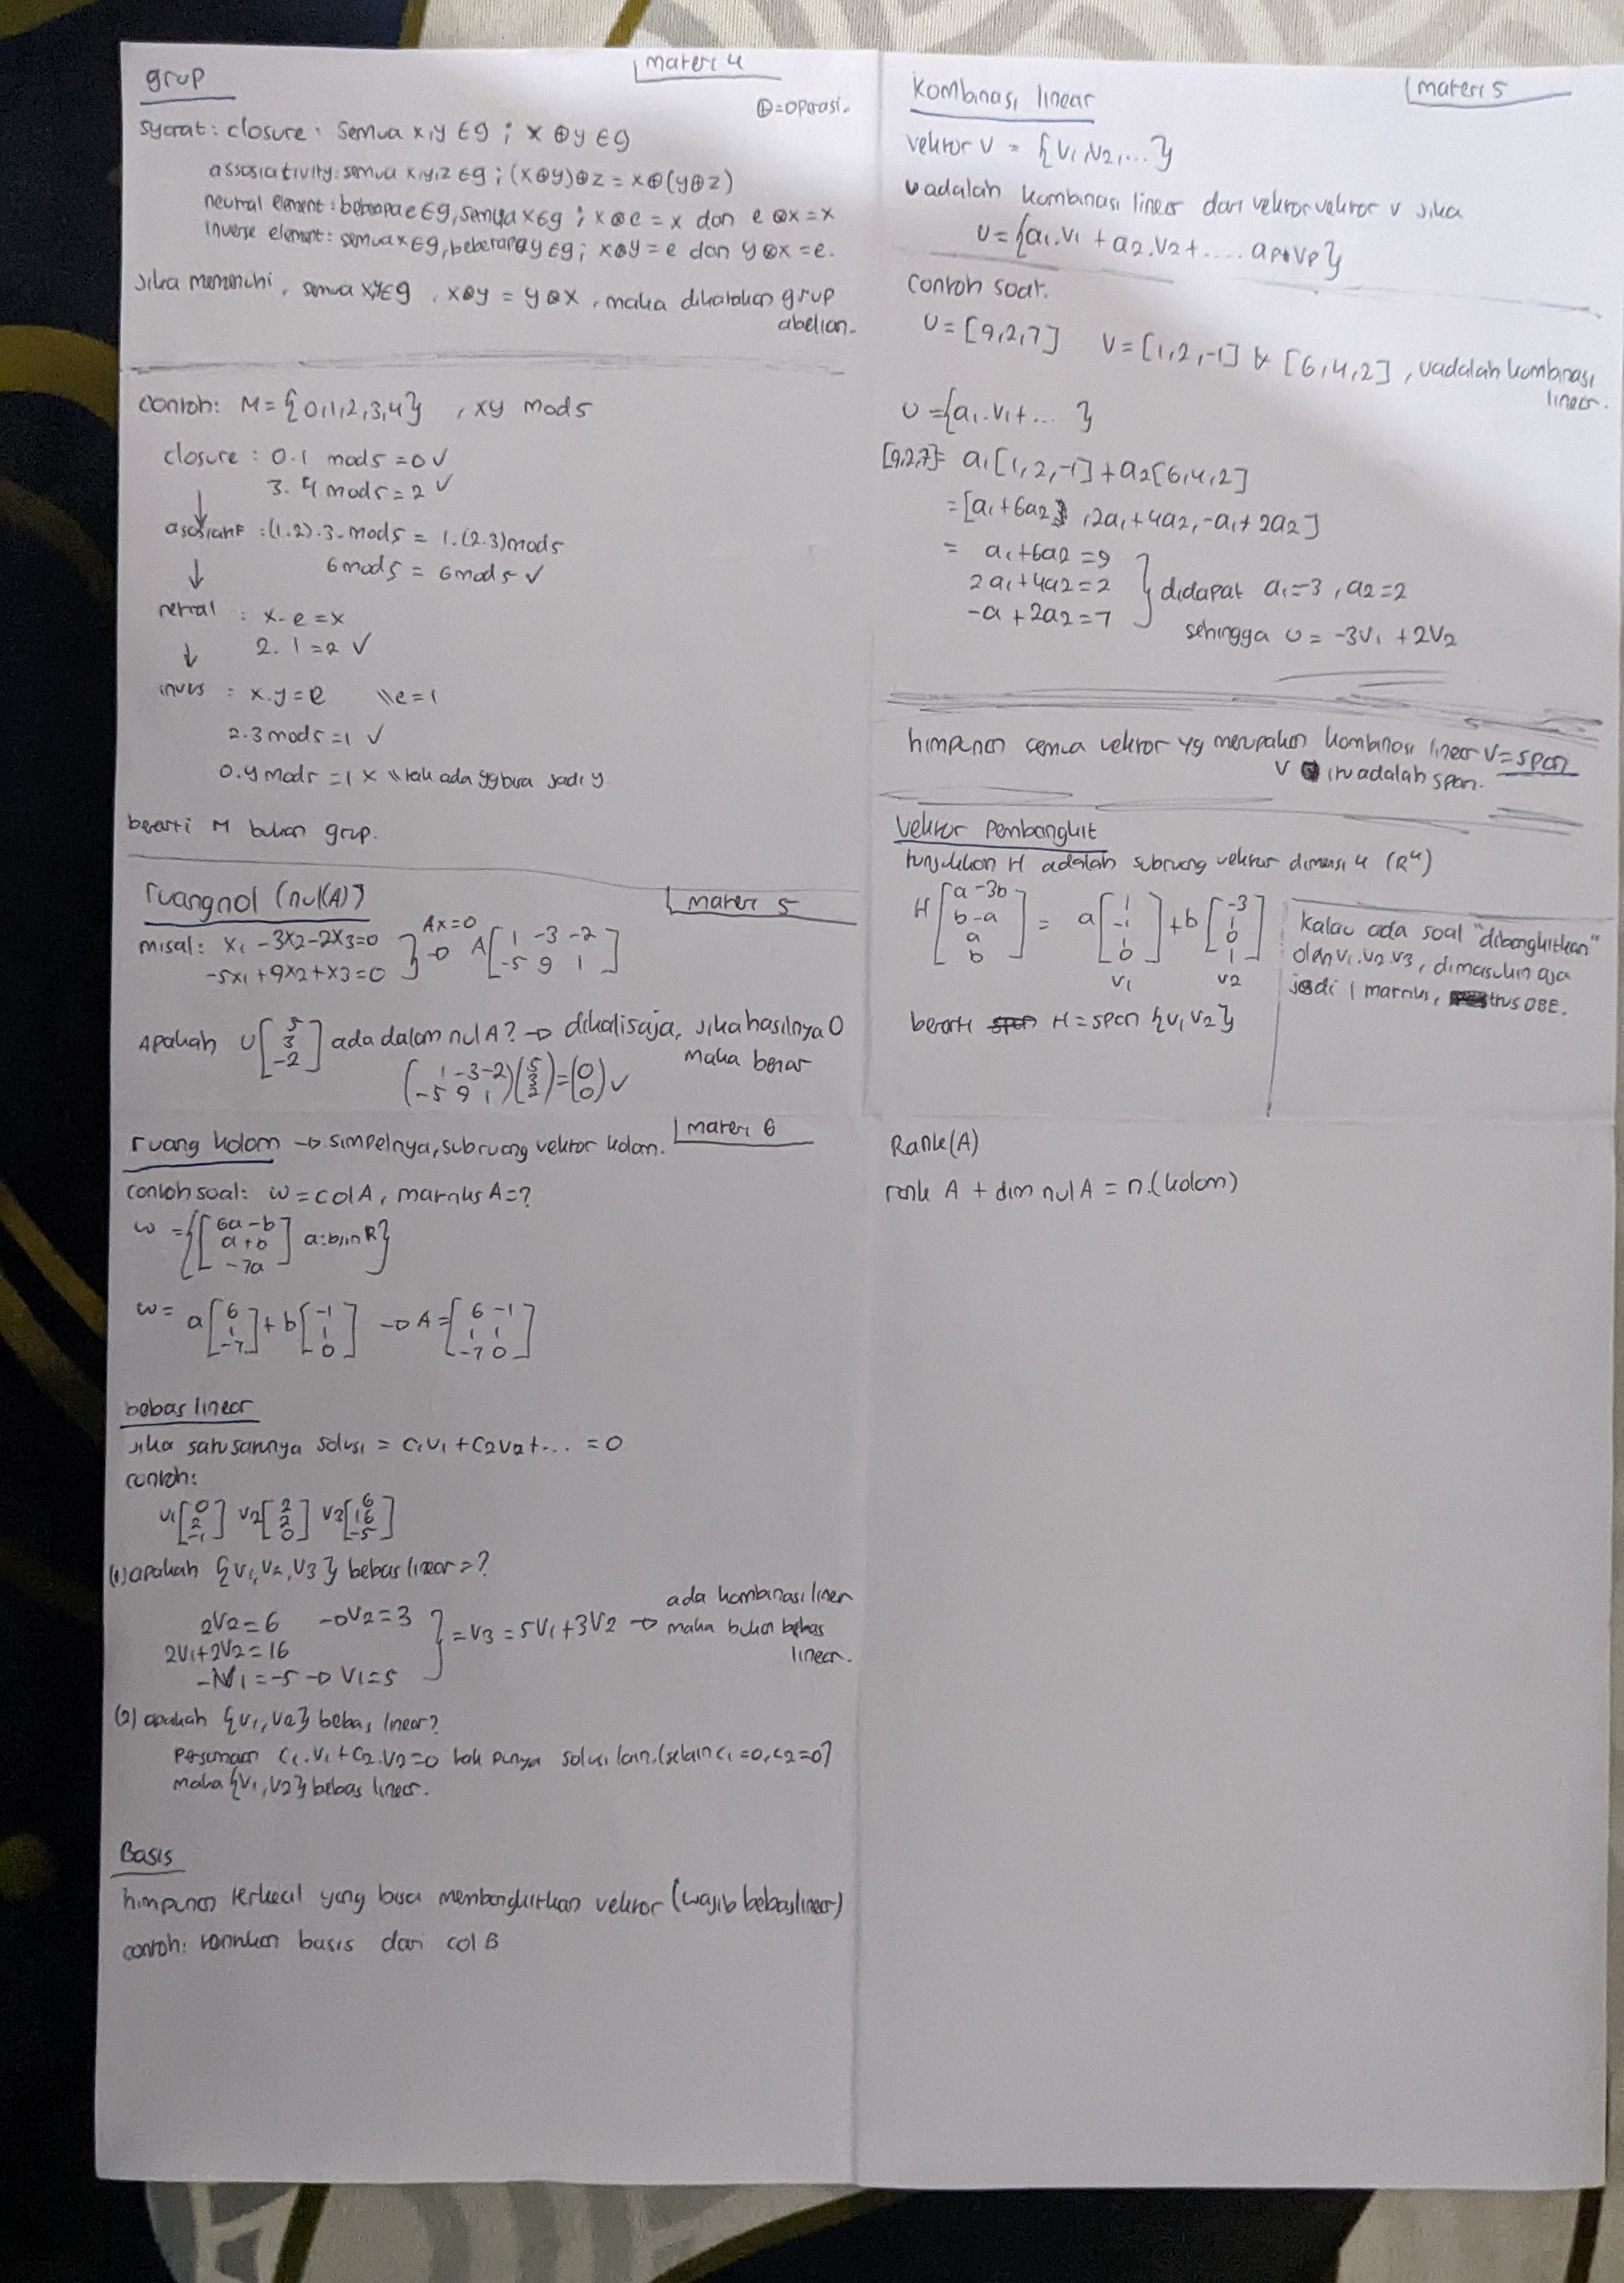 grup
materi 4
⊕=operasi.
syarat: closure: semua x,y ∈ g ; x ⊕ y ∈ g
assosiativity: semua x,y,z ∈ g ; (x⊕y)⊕z = x⊕(y⊕z)
neutral element: beberapa e ∈ g, semua x ∈ g ; x ⊗ e = x dan e ⊗ x = x
inverse element: semua x ∈ g, beberapa y ∈ g ; x⊗y = e dan y ⊗ x = e.
jika memenuhi, semua x,y ∈ g, x⊗y = y⊗x, maka dikatakan grup
abelian.
contoh: M = {0,1,2,3,4} , xy mod 5
closure : 0.1 mod 5 = 0 ✓
3. 4 mod 5 = 2 ✓
↓
asosiatif : (1.2).3. mod 5 = 1.(2.3) mod 5
6 mod 5 = 6 mod 5 ✓
↓
netral : x. e = x
2. 1 = 2 ✓
↓
invers : x.y = e \\e=1
2.3 mod 5 = 1 ✓
0.y mod 5 = 1 × \\tak ada yg bisa jadi y
berarti M bukan grup.
ruang nol (nul(A))
materi 5
misal: x1 - 3x2 - 2x3 = 0
-5x1 + 9x2 + x3 = 0 } → Ax=0 A[1 -3 -2
-5 9 1]
Apakah U [5
3
-2] ada dalam nul A? → dikali saja, jika hasilnya 0
maka benar
(1 -3 -2
-5 9 1) (5
3
2) = (0
0) ✓
ruang kolom → simpelnya, subruang vektor kolom.
materi 6
contoh soal: w = col A, matriks A = ?
w = {[6a - b
a + b
-7a] a,b in R}
w = a[6
1
-7] + b[-1
1
0] → A = [6 -1
1 1
-7 0]
bebas linear
jika satusatunya solusi = c1v1 + c2v2 + ... = 0
contoh:
v1[0
2
-1] v2[2
2
0] v3[6
16
-5]
(1) apakah {v1, v2, v3} bebas linear = ?
2v2 = 6 → v2 = 3
2v1 + 2v2 = 16
-v1 = -5 → v1 = 5 } = v3 = 5v1 + 3v2 → ada kombinasi linier
maka bukan bebas
linear.
(2) apakah {v1, v2} bebas linear?
Persamaan c1.v1 + c2.v2 = 0 tak punya solusi lain (selain c1 = 0, c2 = 0)
maka {v1, v2} bebas linear.
Basis
himpunan terkecil yang bisa membangkitkan vektor (wajib bebas linear)
contoh: tentukan basis dari col B
Kombinasi linear
materi 5
vektor v = {v1, v2, ...}
u adalah kombinasi linear dari vektor vektor v jika
u = {a1.v1 + a2.v2 + .... ap.vp}
contoh soal.
u = [9,2,7] v = [1,2,-1] & [6,4,2], u adalah kombinasi
linear.
u = {a1.v1 + ... }
[9,2,7] = a1[1,2,-1] + a2[6,4,2]
= [a1 + 6a2, 2a1 + 4a2, -a1 + 2a2]
= a1 + 6a2 = 9
2a1 + 4a2 = 2
-a + 2a2 = 7 } didapat a1=-3, a2=2
sehingga u = -3v1 + 2v2
himpunan semua vektor yg merupakan kombinasi linear v = span
v itu adalah span.
Vektor Pembangkit
tunjukkan H adalah subruang vektor dimensi 4 (R⁴)
H [a - 3b
b - a
a
b] = a [1
-1
1
0] + b [-3
1
0
1]
v1 v2
berarti H = span {v1 v2}
Kalau ada soal "dibangkitkan"
oleh v1. v2. v3, dimasukin aja
jadi 1 matriks, trus OBE.
Rank(A)
rank A + dim nul A = n.(kolom)